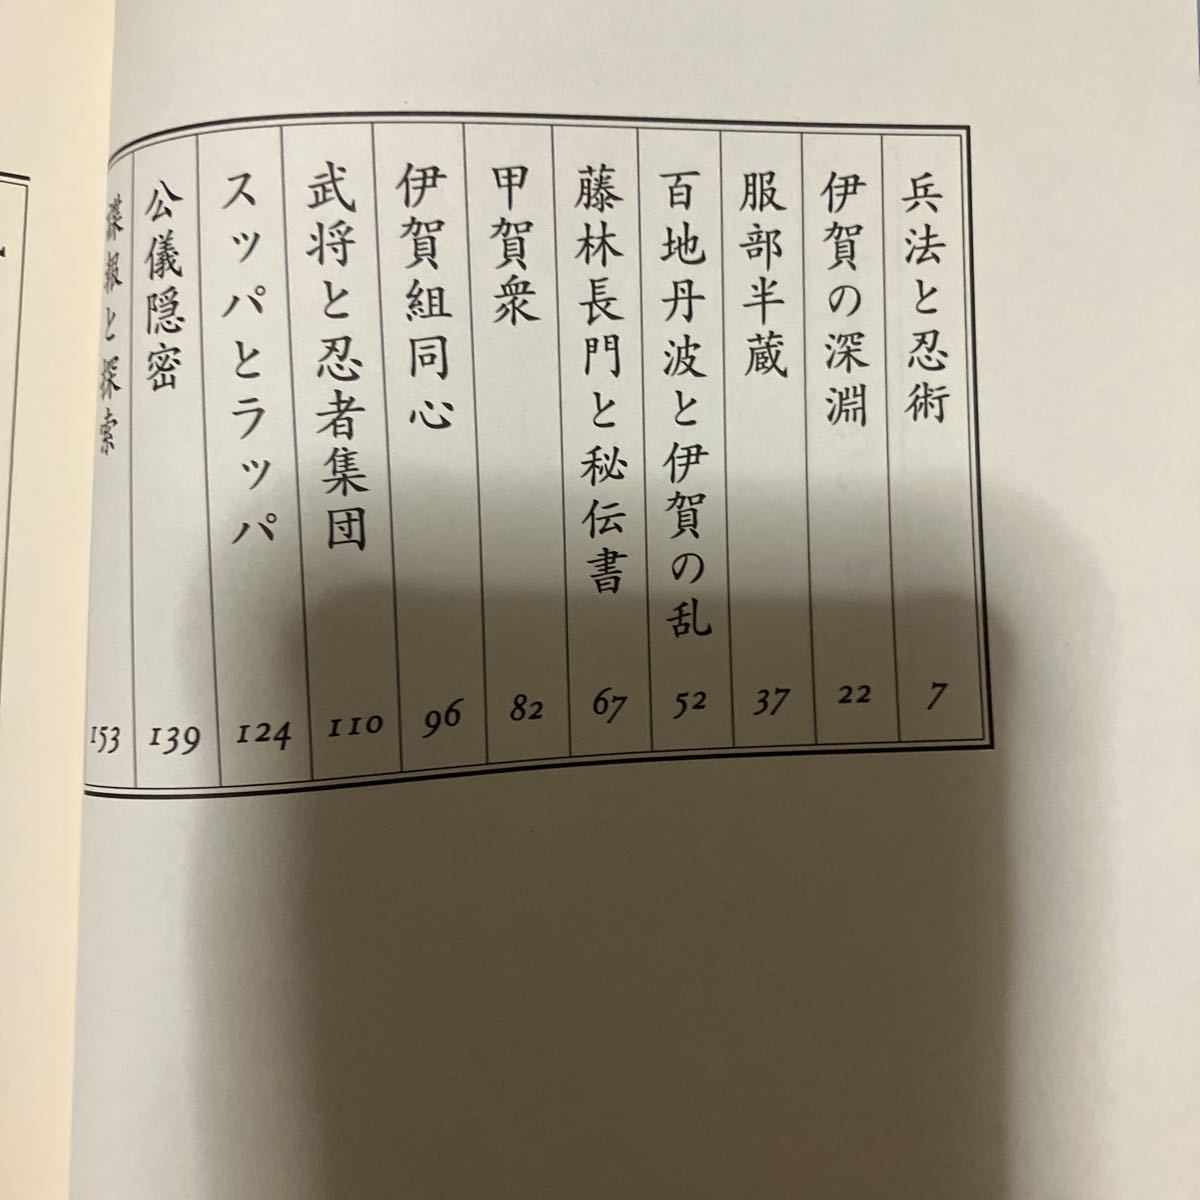 兵法と忍術 7
伊賀の深淵 22
服部半蔵 37
百地丹波と伊賀の乱 52
藤林長門と秘伝書 67
甲賀衆 82
伊賀組同心 96
武将と忍者集団 110
スッパとラッパ 124
公儀隠密 139
諜報と探索 153